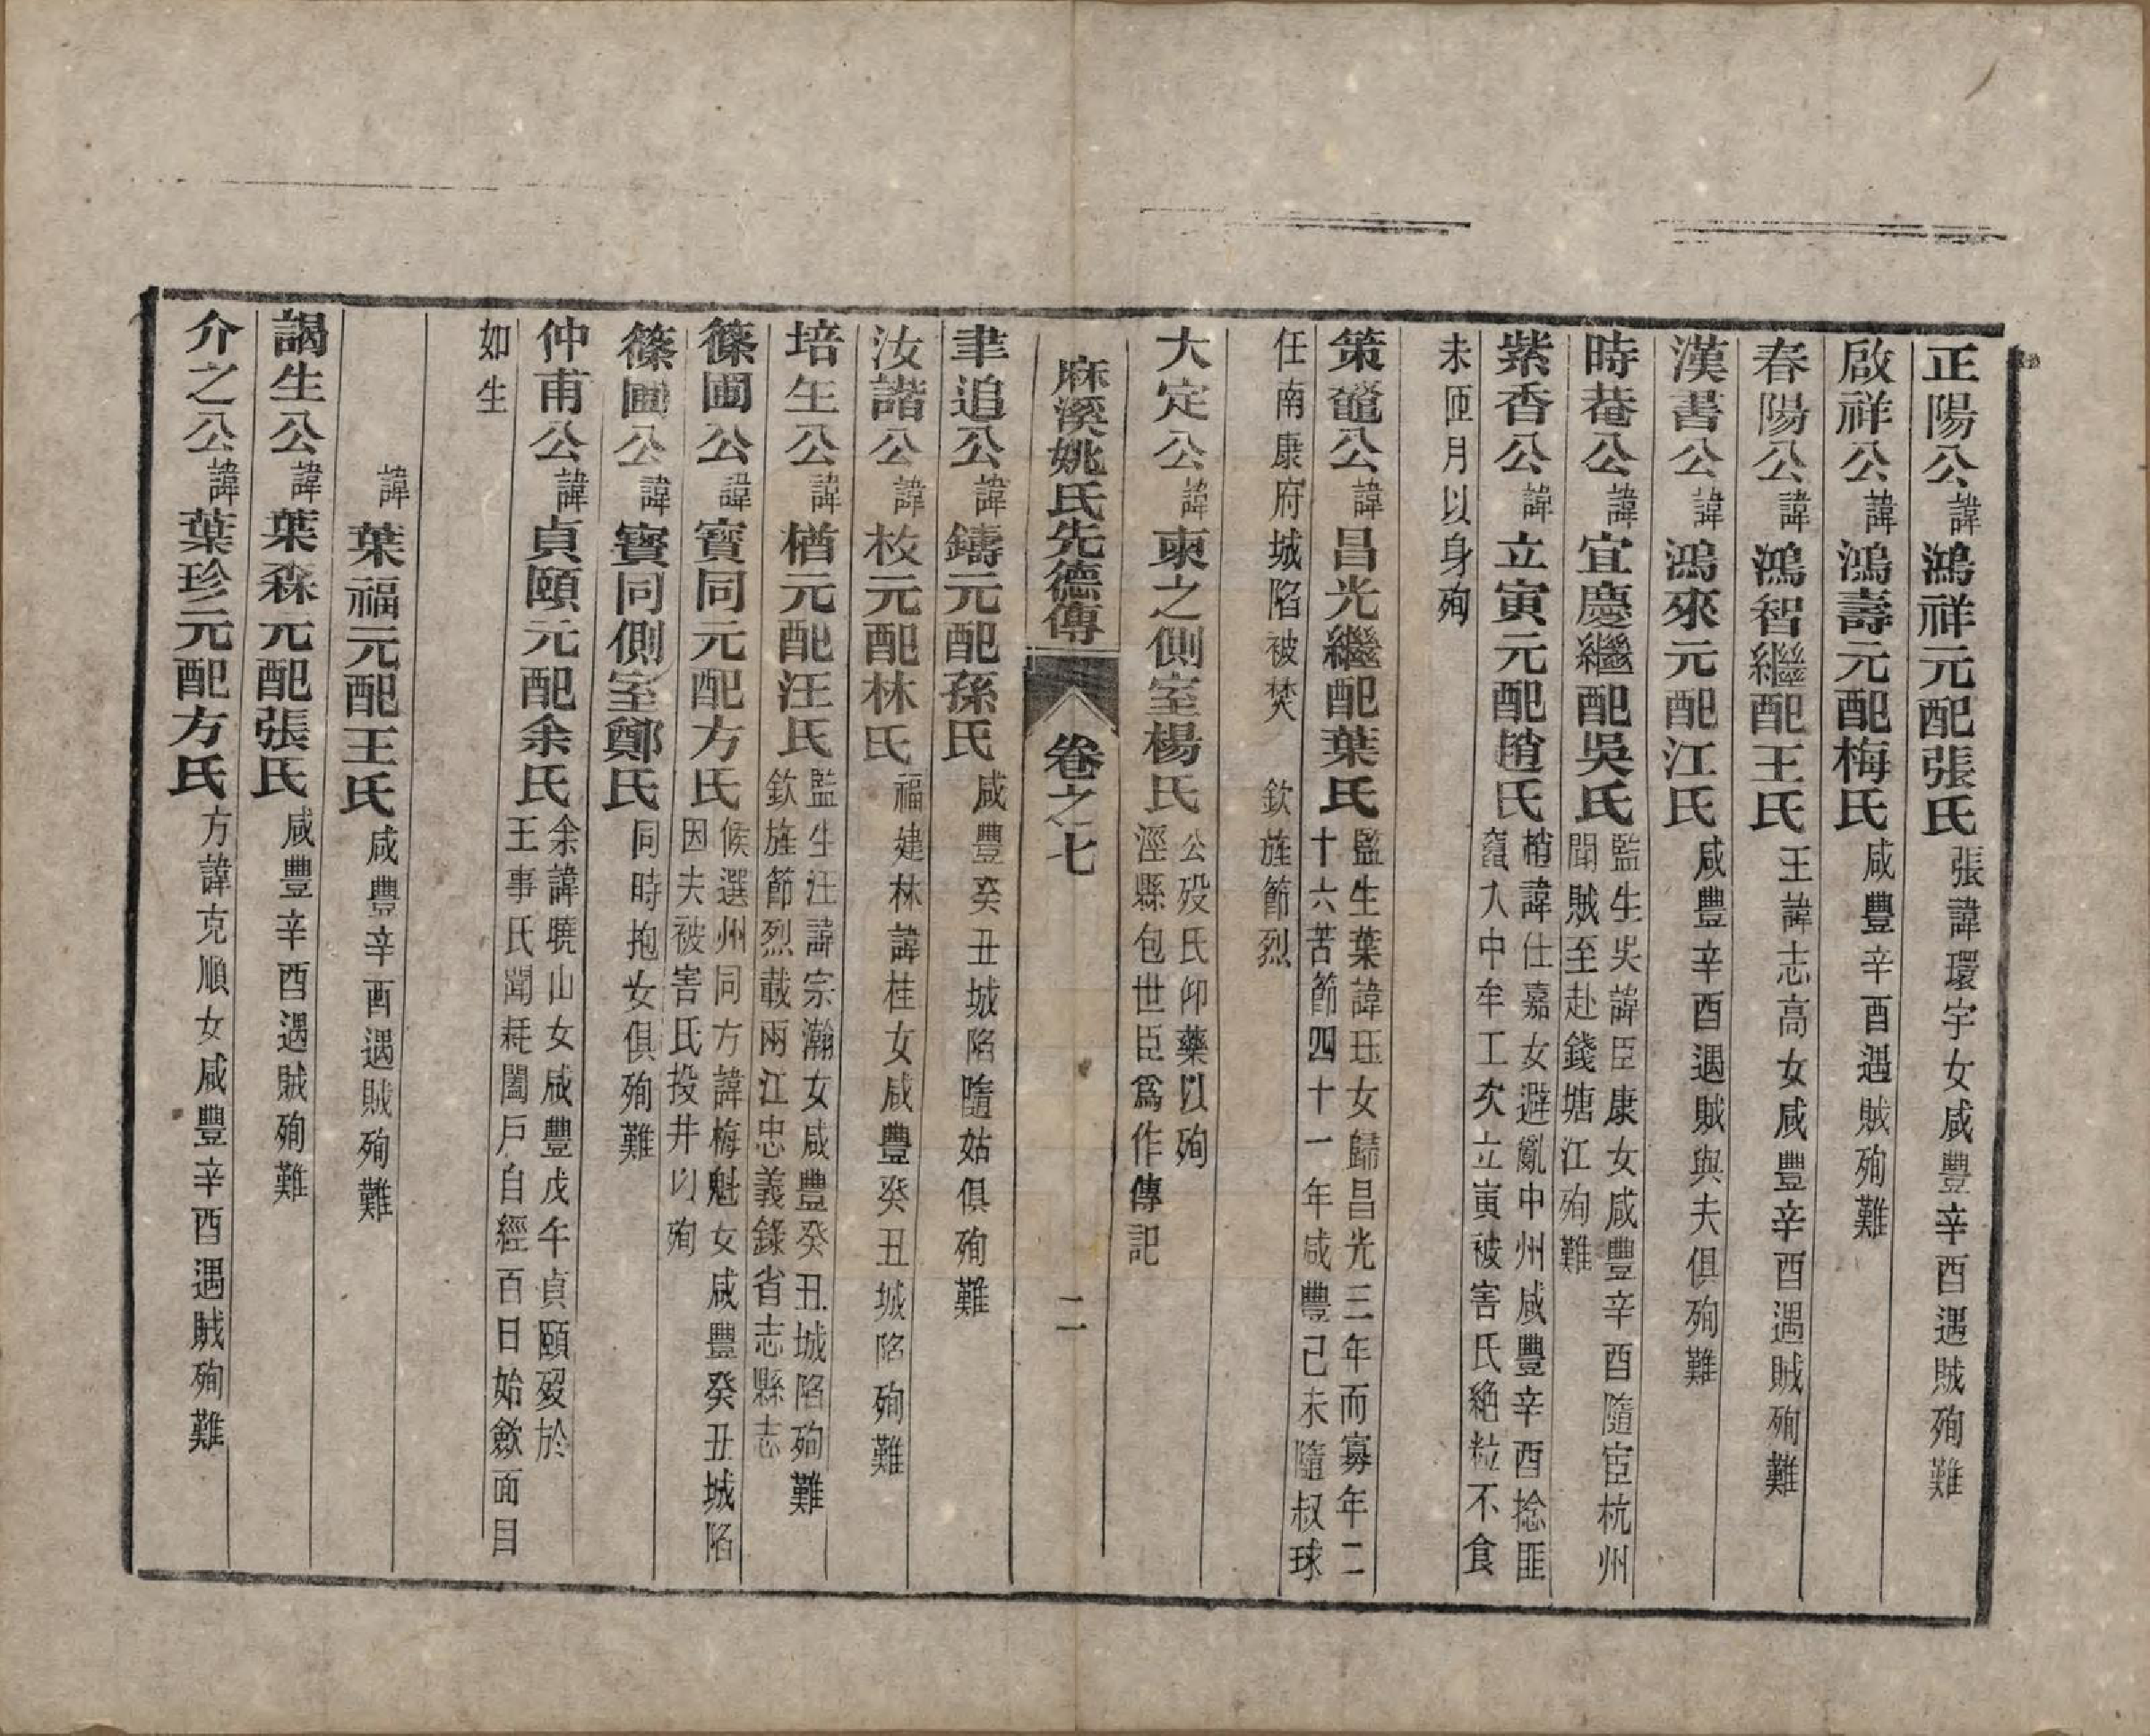 正陽公諱鴻祥元配張氏張諱環宇女咸豐辛酉遇賊殉難
啟祥公諱鴻壽元配梅氏咸豐辛酉遇賊殉難
春陽公諱鴻智繼配王氏王諱志高女咸豐辛酉遇賊殉難
漢書公諱鴻來元配江氏咸豐辛酉遇賊與夫俱殉難
時菴公諱宜慶繼配吳氏監生吳諱臣康女咸豐辛酉隨宦杭州聞賊至赴錢塘江殉難
紫香公諱立寅元配趙氏梢諱仕嘉女避亂中州咸豐辛酉捻匪竄入中牟工次立寅被害氏絶粒不食
未匝月以身殉
策鼇公諱昌光繼配葉氏監生葉諱珏女歸昌光三年而寡年二十六苦節四十一年咸豐己未隨叔球
任南康府城陷被焚 欽旌節烈
大定公諱柬之側室楊氏公歿氏仰藥以殉涇縣包世臣爲作傳記
麻溪姚氏先德傳 卷之七 二
聿追公諱鑄元配孫氏咸豐癸丑城陷隨姑俱殉難
汝諧公諱枚元配林氏福建林諱桂女咸豐癸丑城陷殉難
培生公諱楢元配汪氏監生汪諱宗瀚女咸豐癸丑城陷殉難欽旌節烈載兩江忠義錄省志縣志
篠圃公諱寶同元配方氏候選州同方諱梅魁女咸豐癸丑城陷因夫被害氏投井以殉
篠圃公諱寶同側室鄭氏同時抱女俱殉難
仲甫公諱貞頤元配余氏余諱曉山女咸豐戊午貞頤歿於王事氏聞耗闔戶自經百日始斂面目
如生
諱葉福元配王氏咸豐辛酉遇賊殉難
謁生公諱葉森元配張氏咸豐辛酉遇賊殉難
介之公諱葉珍元配方氏方諱克順女咸豐辛酉遇賊殉難